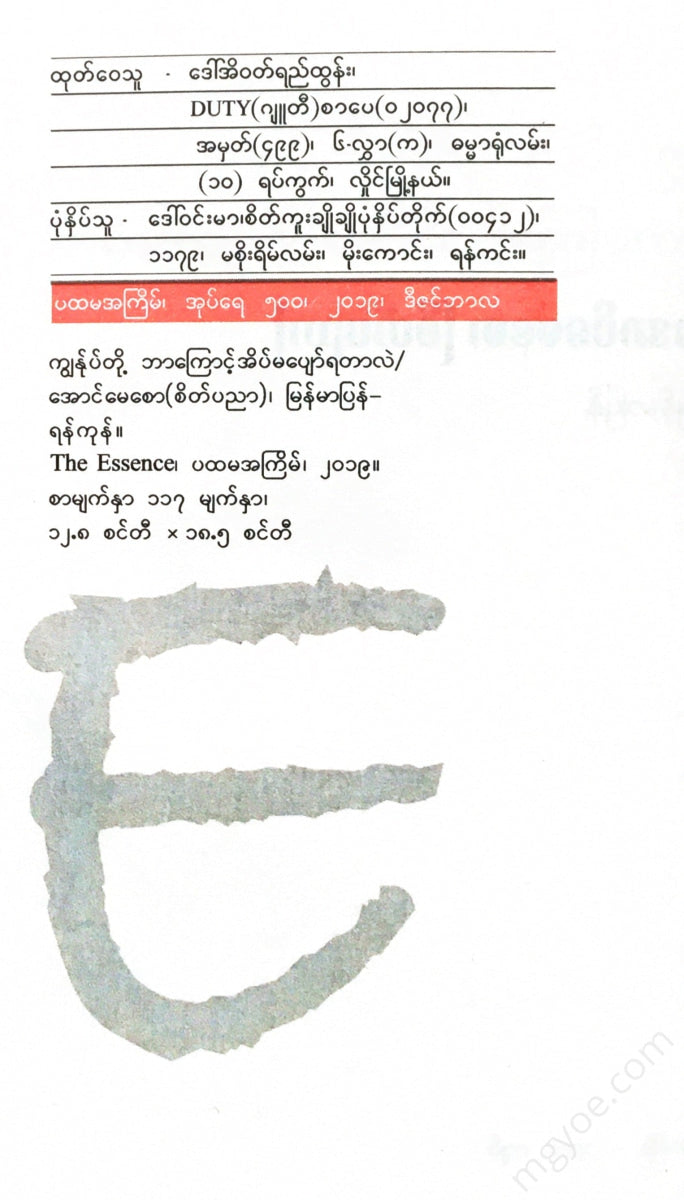 ထုတ်ဝေသူ - ဒေါ်အိဝတ်ရည်ထွန်း၊
DUTY(ဂျူတီ)စာပေ(၀၂၀၇၇)၊
အမှတ်(၄၉၉)၊ ၆-လွှာ(က)၊ ဓမ္မာရုံလမ်း၊
(၁၀) ရပ်ကွက်၊ လှိုင်မြို့နယ်။
ပုံနှိပ်သူ - ဒေါ်ဝင်းမာ၊စိတ်ကူးချိုချိုပုံနှိပ်တိုက်(၀၀၄၁၂)၊
၁၁၇၉၊ မစိုးရိမ်လမ်း၊ မိုးကောင်း၊ ရန်ကင်း။
ပထမအကြိမ်၊ အုပ်ရေ ၅၀၀၊ ၂၀၁၉၊ ဒီဇင်ဘာလ
ကျွန်ုပ်တို့ ဘာကြောင့်အိပ်မပျော်ရတာလဲ/
အောင်မေစော(စိတ်ပညာ)၊ မြန်မာပြန်–
ရန်ကုန်။
The Essence၊ ပထမအကြိမ်၊ ၂၀၁၉။
စာမျက်နှာ ၁၁၇ မျက်နှာ၊
၁၂.၈ စင်တီ × ၁၈.၅ စင်တီ
mgyoe.com